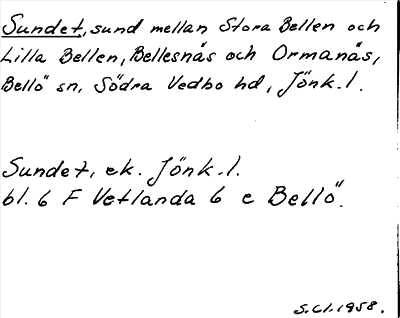 Sundet, sund mellan Stora Bellen och
Lilla Bellen, Bellesnäs och Ormanäs,
Bellö sn, Södra Vedbo hd, Jönk.l.
Sundet, ek. Jönk.l.
bl. 6 F Vetlanda 6 c Bellö.
S.Cl. 1958.